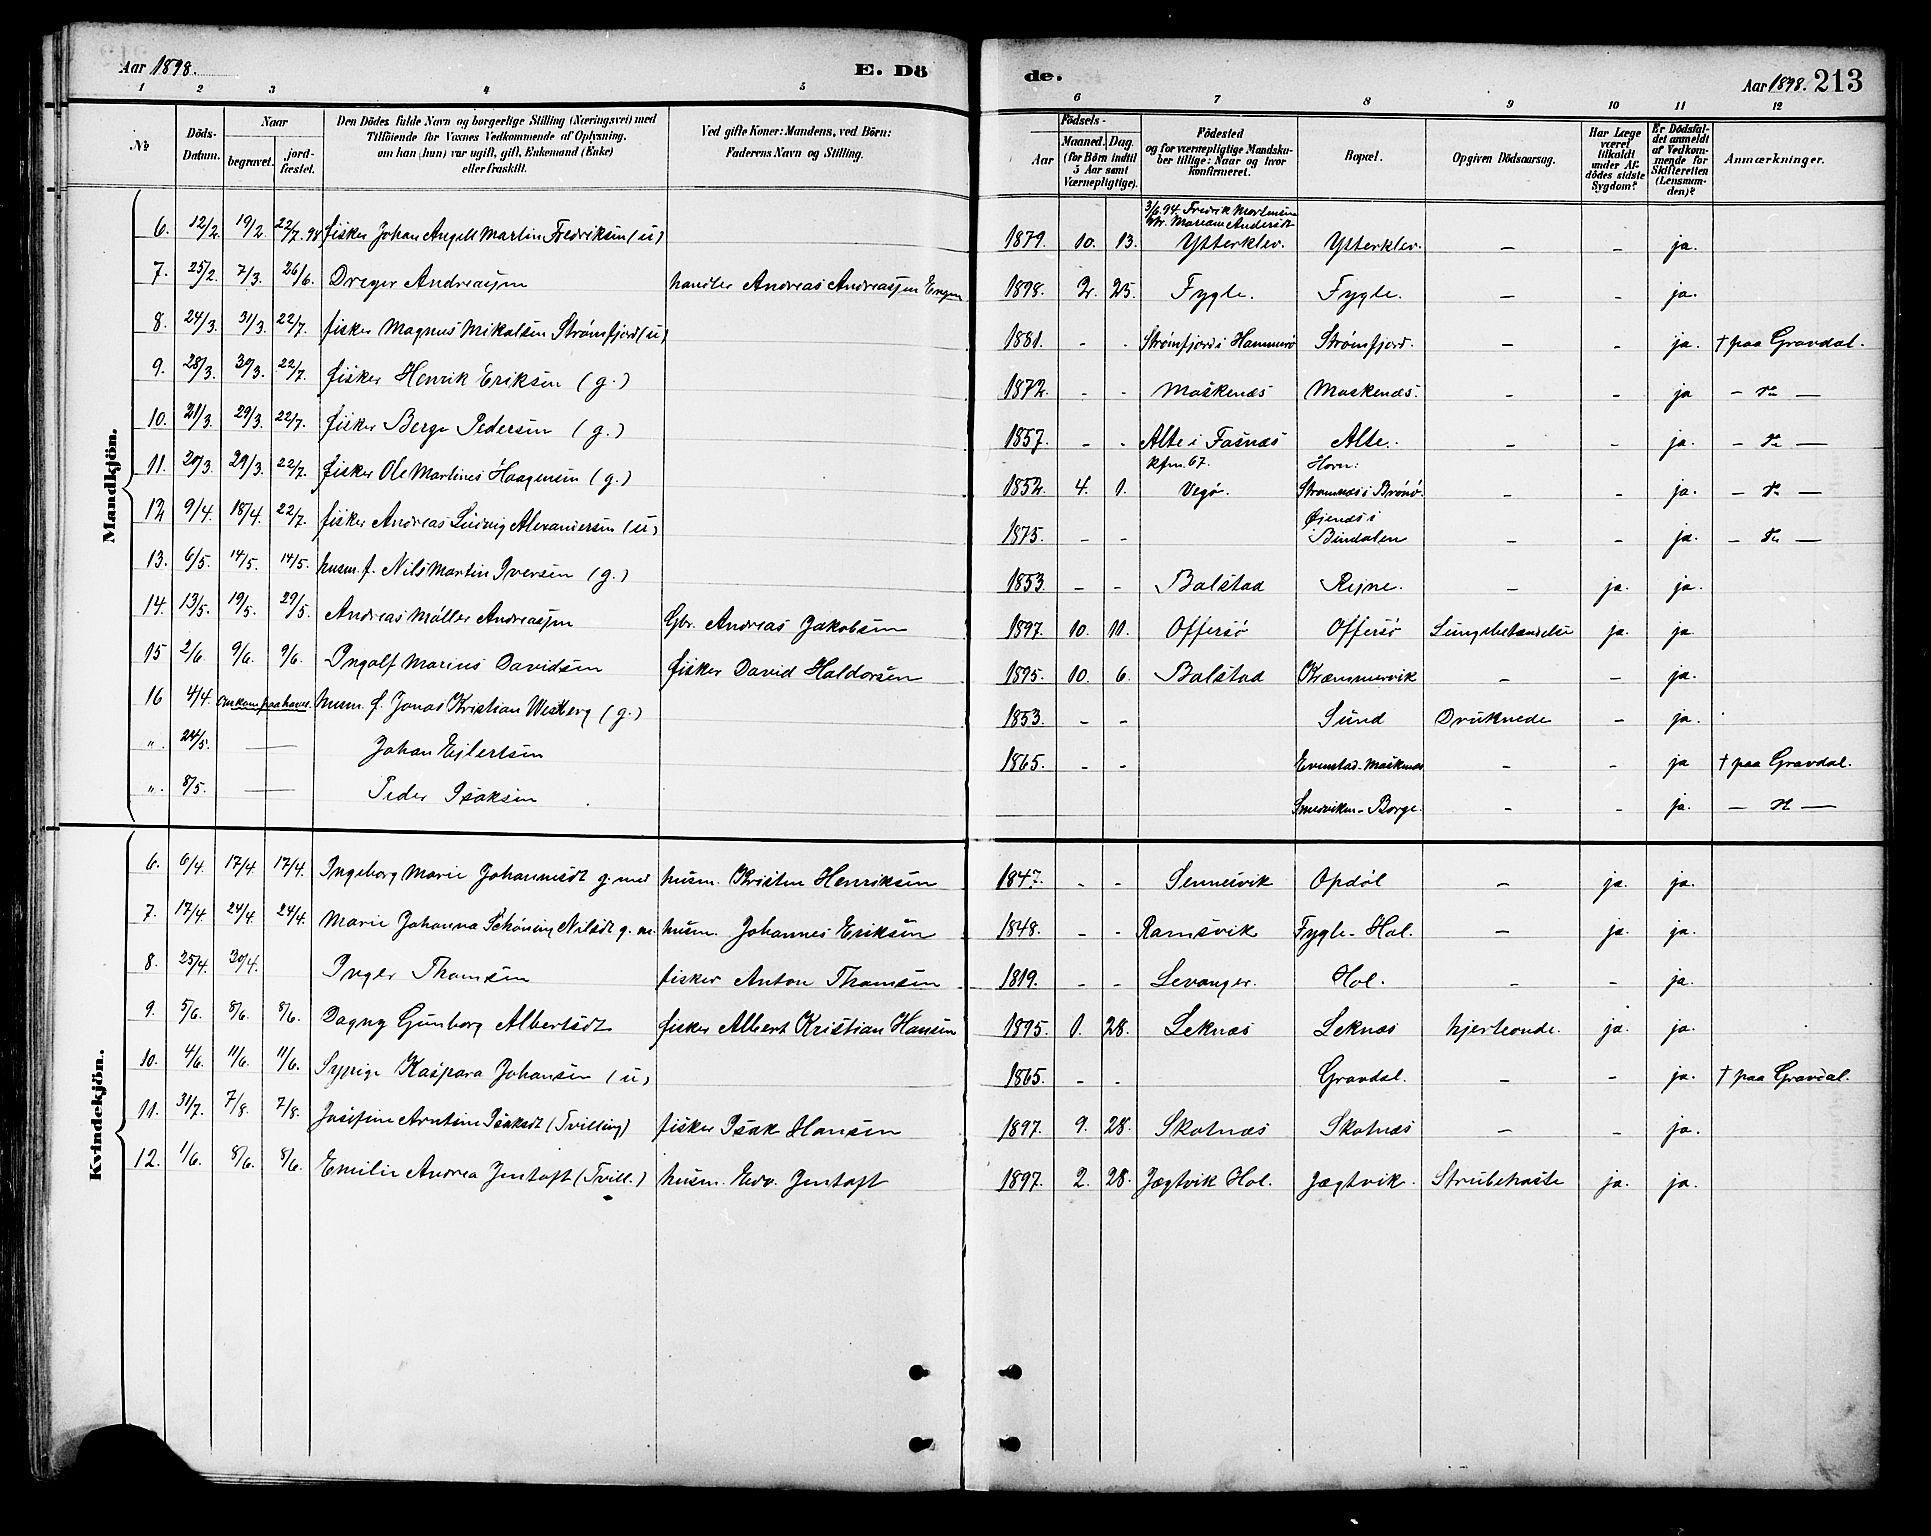 Aar 1898. E. Döde. Aar 1898. 213
1 2 3 4 5 6 7 8 9 10 11 12
No
Döds-Datum.
Naar
begravet.
jordfæstet.
Den Dödes fulde Navn og borgerlige Stilling (Næringsvei) med
Tilföiende for Voxnes Vedkommende af Oplysning,
om han (hun) var ugift, gift, Enkemand (Enke)
eller fraskilt.
Ved gifte Koner: Mandens, ved Börn:
Faderens Navn og Stilling.
Födsels-
Aar
Maaned. Dag.
(for Börn indtil
5 Aar samt
Værnepligtige).
Födested
og for værnepligtige Mandskaber
tillige: Naar og hvor
konfirmeret.
Bopæl.
Opgiven Dödsaarsag.
Har Læge
været
tilkaldt
under Afdödes
sidste
Sygdom?
Er Dödsfaldet
anmeldt
af Vedkommende
for
Skifteretten
(Lensmanden)?
Anmærkninger.
Mandkjön.
3/6.94. Fredrik Mortensen
Mariane Andersdt
6. 12/2. 19/2. 22/7.98 fisker Johan Angell Martin Fredriksen (u) 1879. 10. 13. Ytterklev. Ytterklev. - - ja.
7. 25/2. 7/3. 26/6. Dreyer Andreasen handler Andreas Andreassen 1898. 2. 25. Fygle. Fygle. - - ja.
8. 24/3. 31/3. 22/7. fisker Magnus Mikalsen Strømfjord (u) 1881. - - Strømfjord i Hammerø Strømfjord. - - ja. † paa Gravdal.
9. 28/3. 30/3. 22/7. fisker Henrik Eriksen (g.) 1872. - - Moskenæs Moskenæs. - - ja - "
10. 21/3. 29/3. 22/7. fisker Berge Pedersen (g.) 1857. - - Alte i Fosnæs Alte. - - ja. - "
kfm. 67. Horn:
11. 20/3. 29/3. 22/7. fisker Ole Martines Haagensen (g.) 1852. 4. 1. Vegø. Strømnæs i Brønø. - - ja. - "
Øjenæs i
12 9/4. 18/4. 22/7. fisker Andreas Ludvig Alexandersen (u) 1875. - - Bindalen - - ja. - "
13. 6/5. 14/5. 14/5. husm. f. Nils Martin Iversen (g.) 1853. - - Balstad Rejne. - ja. ja.
14. 13/5. 19/5. 29/5. Andreas Møller Andreasen Gbr. Andreas Jakobsen 1897. 10. 11. Offersø Offersø Lungebetændelse ja. ja.
15 2/6. 9/6. 9/6. Ingolf Marius Davidsen fisker David Haldorsen 1895. 10. 6. Balstad Kræmmervik - - ja.
16 4/4. omkom paa havet. husm. f. Jonas Kristian Westberg (g.) 1853. - - Sund Druknede - ja.
". 24/5. — Johan Ejlertsen 1865. - - Evenstad-Moskenæs - - ja † paa Gravdal.
". 8/5. — Peder Isaksen Smørviken-Borge. - - ja. - "
Kvindekjön.
6. 6/4. 17/4. 17/4. Ingeborg Marie Johannesdt g. med husm. Kristen Henriksen 1847. - - Sennesvik Opdøl - ja. ja.
7. 17/4. 24/4. 24/4. Marie Johanna Schøning Nilsdt g. m. husm. Johannes Eriksen 1848. - - Ramsvik Fygle-Hol. - ja. ja.
8. 25/4. 30/4. Inger Thomsen fisker Anton Thomsen 1819. - - Levanger. Hol. - - ja.
9. 5/6. 8/6. 8/6. Dagny Gunborg Albertsdt fisker Albert Kristian Hansen 1895. 1. 28. Leknæs Leknæs hjerteonde. ja. ja.
10. 4/6. 11/6. 11/6. Sypige Kaspara Johansen (u) 1865. - - Gravdal. - - ja. † paa Gravdal.
11. 31/7. 7/8. 7/8. Josefine Arntine Isaksdt (Tvilling) fisker Isak Hansen 1897. 9. 28. Skotnæs Skotnæs - - ja.
12. 1/6. 8/6. 8/6. Emilie Andrea Jentoft (Tvill.) husm. Edv. Jentoft 1897. 2. 28. Jægtvik Hol. Jægtvik. Strubehoste ja. ja.